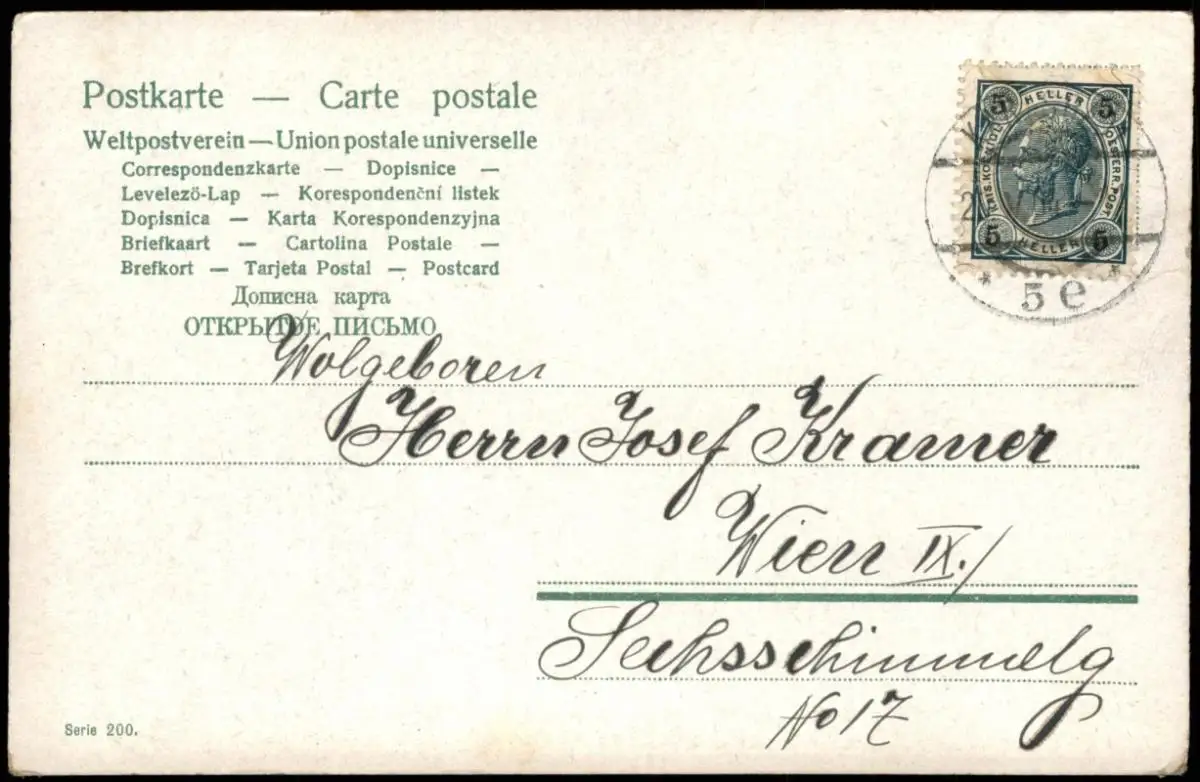 Postkarte — Carte postale
Weltpostverein — Union postale universelle
Correspondenzkarte — Dopisnice —
Levelező-Lap — Korespondenční listek
Dopisnica — Karta Korespondenzyjna
Briefkaart — Cartolina Postale —
Brefkort — Tarjeta Postal — Postcard
Дописна карта
ОТКРЫТОЕ ПИСЬМО
5 HELLER 5
KAIS. KOENIGL. OESTERR. POST.
5 HELLER 5
* 5 e *
Wolgeboren
Herrn Josef Kramer
Wien IX./
Sechsschimmelg
No 17
Serie 200.